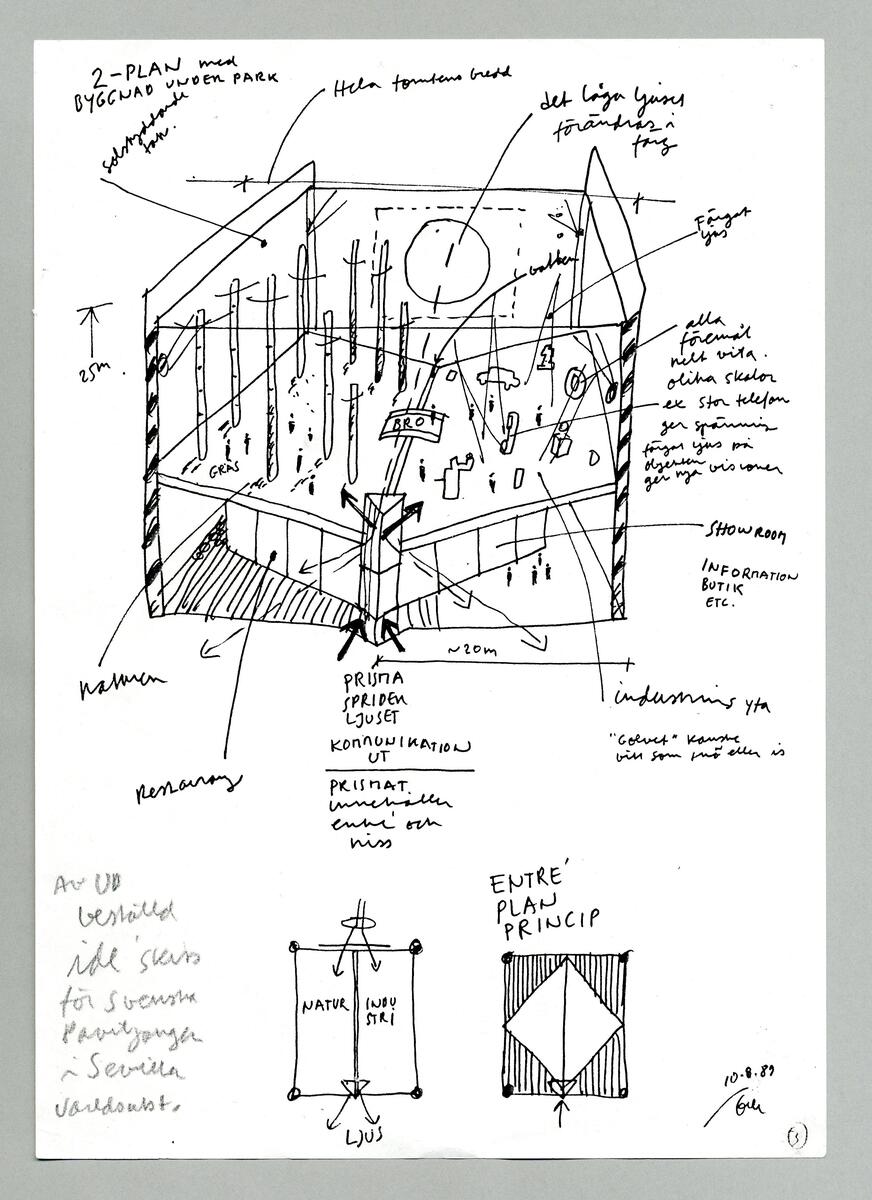 2-PLAN med
BYGGNAD UNDER PARK
solskyddande
tak.
Hela tomtens bredd
det låga ljuset
förändras i
färg
Färgat
ljus
vatten
25m.
alla
föremål
helt vita.
olika skalor
ex stor telefon
ger spänning
färgat ljus på
objekten
ger nya visioner
BRO
GRÄS
SHOWROOM
INFORMATION
BUTIK
ETC.
~20m
naturen
industrins yta
"Golvet" kanske
vitt som snö eller is
Restaurang
PRISMA
SPRIDER
LJUSET
KOMMUNIKATION
UT
PRISMAT
innehåller
entré och
hiss
Av UD
beställd
idé skiss
för Svenska
Paviljongen
i Sevilla
världsutst.
NATUR
INDU
STRI
LJUS
ENTRÉ
PLAN
PRINCIP
10.8.89
3